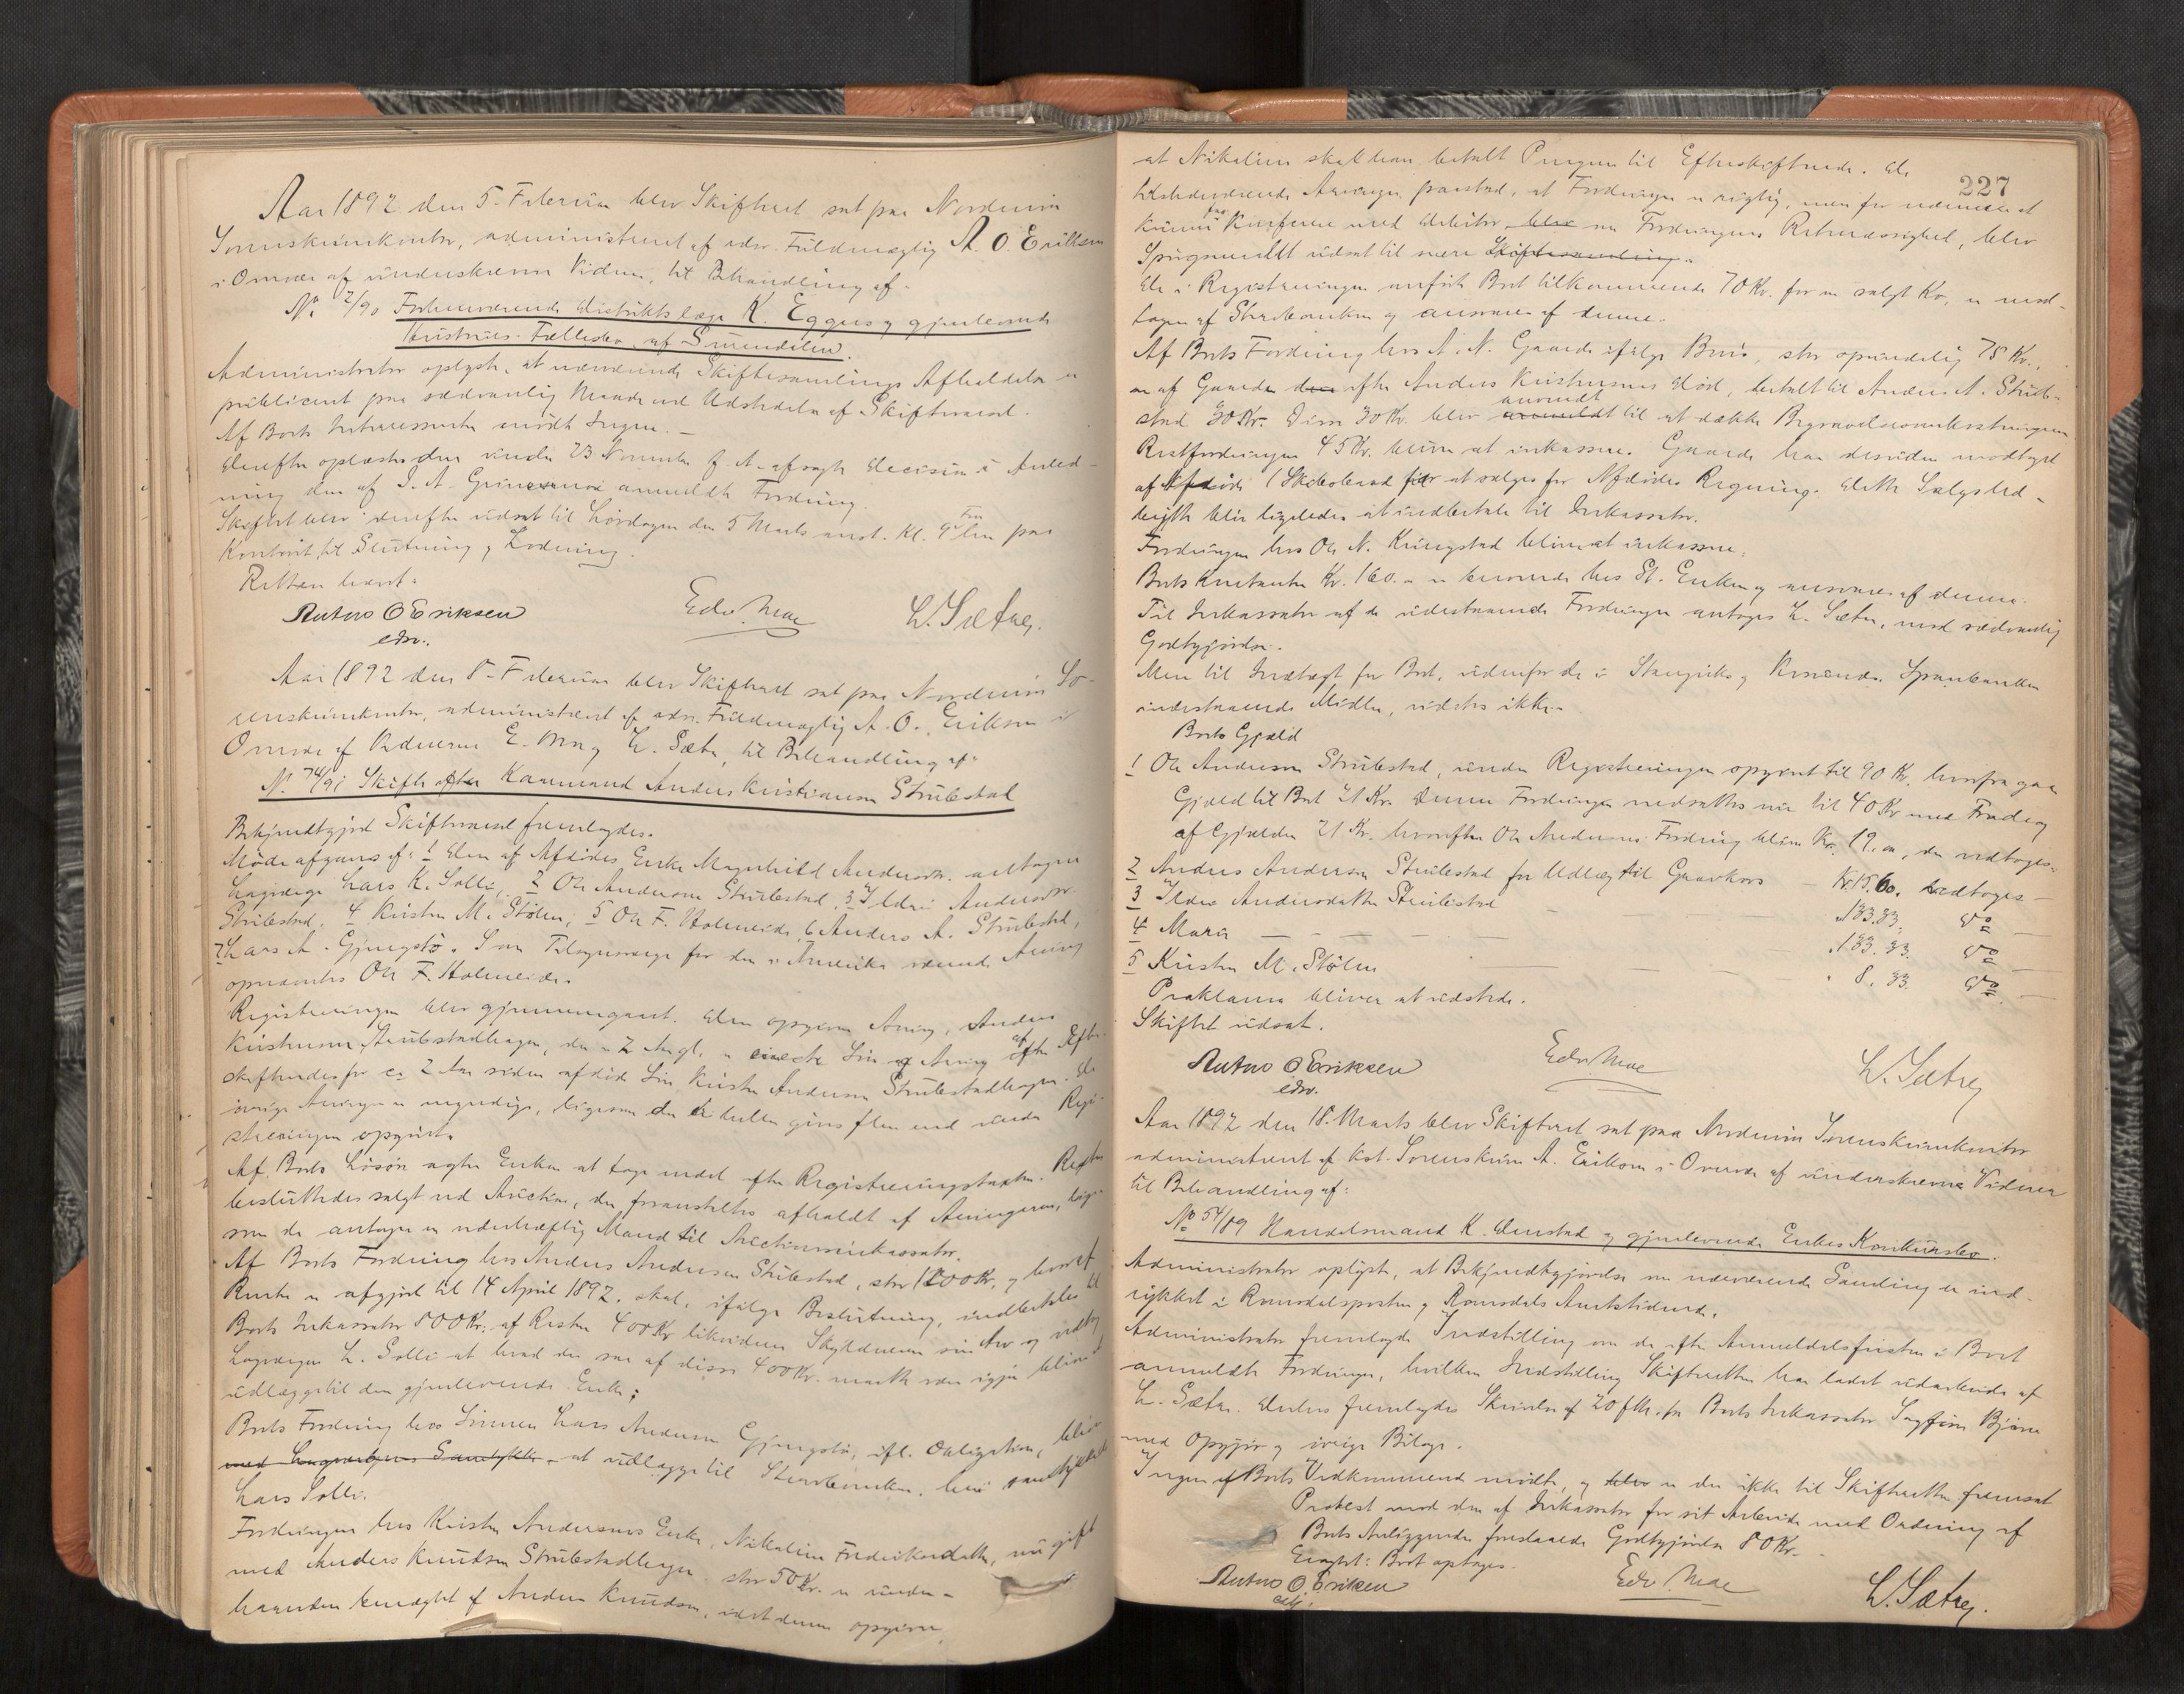 Aar 1892 den 5. Februar blev Skifteret sat paa Nordmør
Sorenskriverkontor, administreret af edsv. Fuldmægtig A. O. Eriksen
i Overvær af underskrevne Vidner, til Behandling af
No 2/90 Forhenværende Distriktslæge K. Eggers og gjenlevende
Hustrues Fællesbo af Surendalen.
Administrator oplyste, at nærværende Skiftesamlings Afholdelse er
publiceret paa sædvanlig Maade ved Udstedelse af Skiftevarsel.
Af Boets Interessenter mødte Ingen. —
Derefter oplæstes den under 23 November f. A. afsagte Decision i Anled-
ning den af I. A. anmeldte Fordring.
Skiftet blev derefter udsat til Lørdagen den 5 Marts anst. Kl. 9 Fm paa
Kontoret til Slutning og Lodning.
Retten hævet.
Antno O Eriksen Edv. Moe L. Sætrej.
edsv.
Aar 1892 den 8. Februar blev Skifteret sat paa Nordmør So-
renskriverkontor, administreret af edsv. Fuldmægtig A. O. Eriksen i
Overvær af Vidnerne E. Moe og L. Sæter, til Behandling af
No 74/91 Skifte efter Kaarmand Anders Kristiansen Strubstad
Bekjendtgjort Skiftevarsel fremlagdes.
Møde afgaves af: 1 Den af Afdødes Enke Magnhild Andersdr. antagne
Laugværge Lars K. Solli, 2 Ole Andersen Strubestad, 3 Ildri Andersdr
Strubestad, 4 Kristen M. Stølen, 5 Ole F. Holmeide, 6 Anders A. Strubstad,
7 Lars A. Gjengstø. Som Tilsynsværge for den i Amerika værende Arving
opnævntes Ole F. Holmeide.
Registreringen blev gjennemgaaet. Den opgivne Arving, Anders
Kristensen Strubstadhagen, der er 2 Aar gl. er eneste Søn og Arving af efter Efter-
skiftendes for ca 2 Aar siden afdøde Søn Kristen Andersen Strubestadhagen. De
øvrige Arvinger er myndige, ligesom der ei heller gives flere end under Regi-
streringen opgivet.
Af Boets Løsøre agter Enken at tage endel efter Registreringstaxten. Resten
besluttedes solgt ved Auktion, der foranstaltes afholdt af Arvingerne, lige-
som de antager en vederhæftig Mand til Auctionsinkassator.
Af Boets Fordring hos Anders Andersen Strubestad, stor 1200 Kr, og hvoraf
Renter er afgjort til 14 April 1892, skal, ifølge Beslutning, indbetales til
Boets Inkassator 800 Kr; af Resten 400 Kr likviderer Skyldneren sin Arv og vedtog
Laugværgen L. Solli at hvad der saa af disse 400 Kr. maatte være igjen bliver at
udlægge til den gjenlevende Enke;
Boets Fordring hos Sønnen Lars Andersen Gjengstø, ifl. Obligation, bliver
med Laugværgens Samtykke at udlægge til Sterboenken, hvori samtykkede
Lars Solli.
Fordringen hos Kristen Andersens Enke, Nikoline Fredriksdatter, nu gift
med Anders Knudsen Strubestadhagen, stor 50 Kr. er under-
haanden benægtet af Anders Knudsen, idet denne opgiver,
227
at Nikoline skal have betalt Pengene til Efterskiftende. De
tilstedeværende Arvinger paastod, at Fordringen er rigtig, men for nærmere at
kunne faa Konference med Debitor blev om Fordringens Retmæssighed, blev
Spørgsmaalet udsat til næste Skiftesamling.
De i Registreringen anførte Boet tilkommende 70 Kr. for en solgt Ko, er mod-
tagen af Sterboenken og ansvares af denne.
Af Boets Fordring hos A. N. Gaarde ifølge Bevis, stor oprindelig 75 Kr.,
er af Gaarde den efter Anders Kristensens Død, betalt til Anders A. Strub-
stad 30 Kr. Disse 30 Kr. blev anmeldt anvendt til at dække Begravelsesomkostningerne
Restfordringen 45 Kr. bliver at inkassere. Gaarde har desuden modtaget
af Afdøde 1 Skibsbaad for at sælges for Afdødes Regning. Dette Salgsbeløb
bliver ligeledes at indbetale til Inkassator.
Fordringen hos Ole N. Kringstad bliver at inkassere.
Boets Kontanter Kr. 160. — er beroende hos St. Enken og ansvares af denne.
Til Inkassator af de udestaaende Fordringer antoges L. Sæter, mod sædvanlig
Godtgjørelse.
Mere til Indtægt for Boet, udenfor de i Stangviks og Kr.sunds Sparebanken
indestaaende Midler, vidstes ikke.
Boets Gjæld
1 Ole Andersen Strubestad, under Registreringen opgivet til 90 Kr. hvorfra gaar
Gjæld til Boet 21 Kr. Denne Fordringen nedsattes nu til 40 Kr med Fradrag
af Gjælden 21 Kr. hvorefter Ole Andersens Fordring bliver Kr. 19. —, der vedtoges.
2 Anders Andersen Strubestad for Udlæg til Gravkors — Kr. 15.60. vedtoges —
3 Ildri Andersdatter Strubestad — 133.33. Do —
4 Marie — — — 133.33. Do —
5 Kristen M. Stølen — — 8.33. Do —
Proklama bliver at udstede.
Skiftet udsat.
Antno O Eriksen Edv Moe L. Sætrej
edsv.
Aar 1892 den 18. Marts blev Skifteret sat paa Nordmør Sorenskriverkontor
administreret af Kst. Sorenskriver A. Eriksen i Overvær af underskrevne Vidner
til Behandling af:
No 54/89 Handelsmand K. Ørnstad og gjenlevende Enkes Konkursbo.
Administrator oplyste, at Bekjendtgjørelse om nærværende Samling er ind-
rykket i Romsdalsposten og Romsdals Amtstidende.
Administrator fremlagde Indstilling om de efter Anmeldelsesfristen i Boet
anmeldte Fordringer, hvilken Indstilling Skifteretten har ladet udarbeide af
L. Sæter. Derhos fremlagdes Skrivelse af 20 f. M. fra Boets Inkassator Sagfører Bjørn
med Opgjør og øvrige Bilage.
Ingen af Boets Vedkommende mødte, og blev er der ikke til Skifteretten fremsat
Protest mod den af Inkassator for sit Arbeide med Ordning af
Boets Anliggender foreslaaede Godtgjørelse 80 Kr.
Eragtet: Boet optages.
Antno O. Eriksen Edv. Moe L. Sætrej.